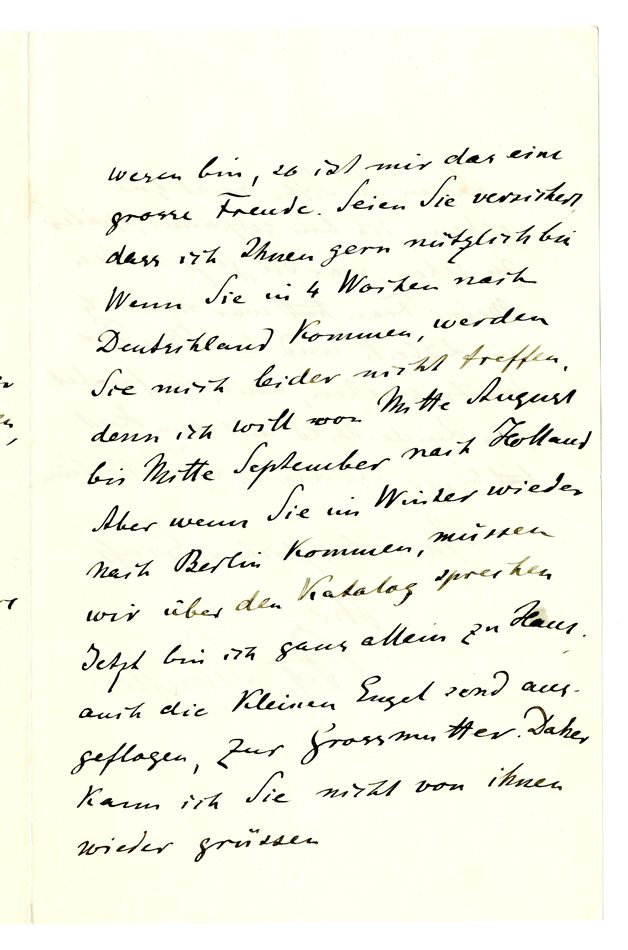 wesen bin, so ist mir das eine
grosse Freude. Seien Sie versichert,
dass ich Ihnen gern nützlich bin
Wenn Sie in 4 Wochen nach
Deutschland kommen, werden
Sie mich leider nicht treffen,
denn ich will von Mitte August
bis Mitte September nach Holland
Aber wenn Sie im Winter wieder
nach Berlin kommen, müssen
wir über den Katalog sprechen
Jetzt bin ich ganz allein zu Haus,
auch die kleinen Engel send aus-
geflogen, zur Grossmutter. Daher
kann ich Sie nicht von ihnen
wieder grüssen